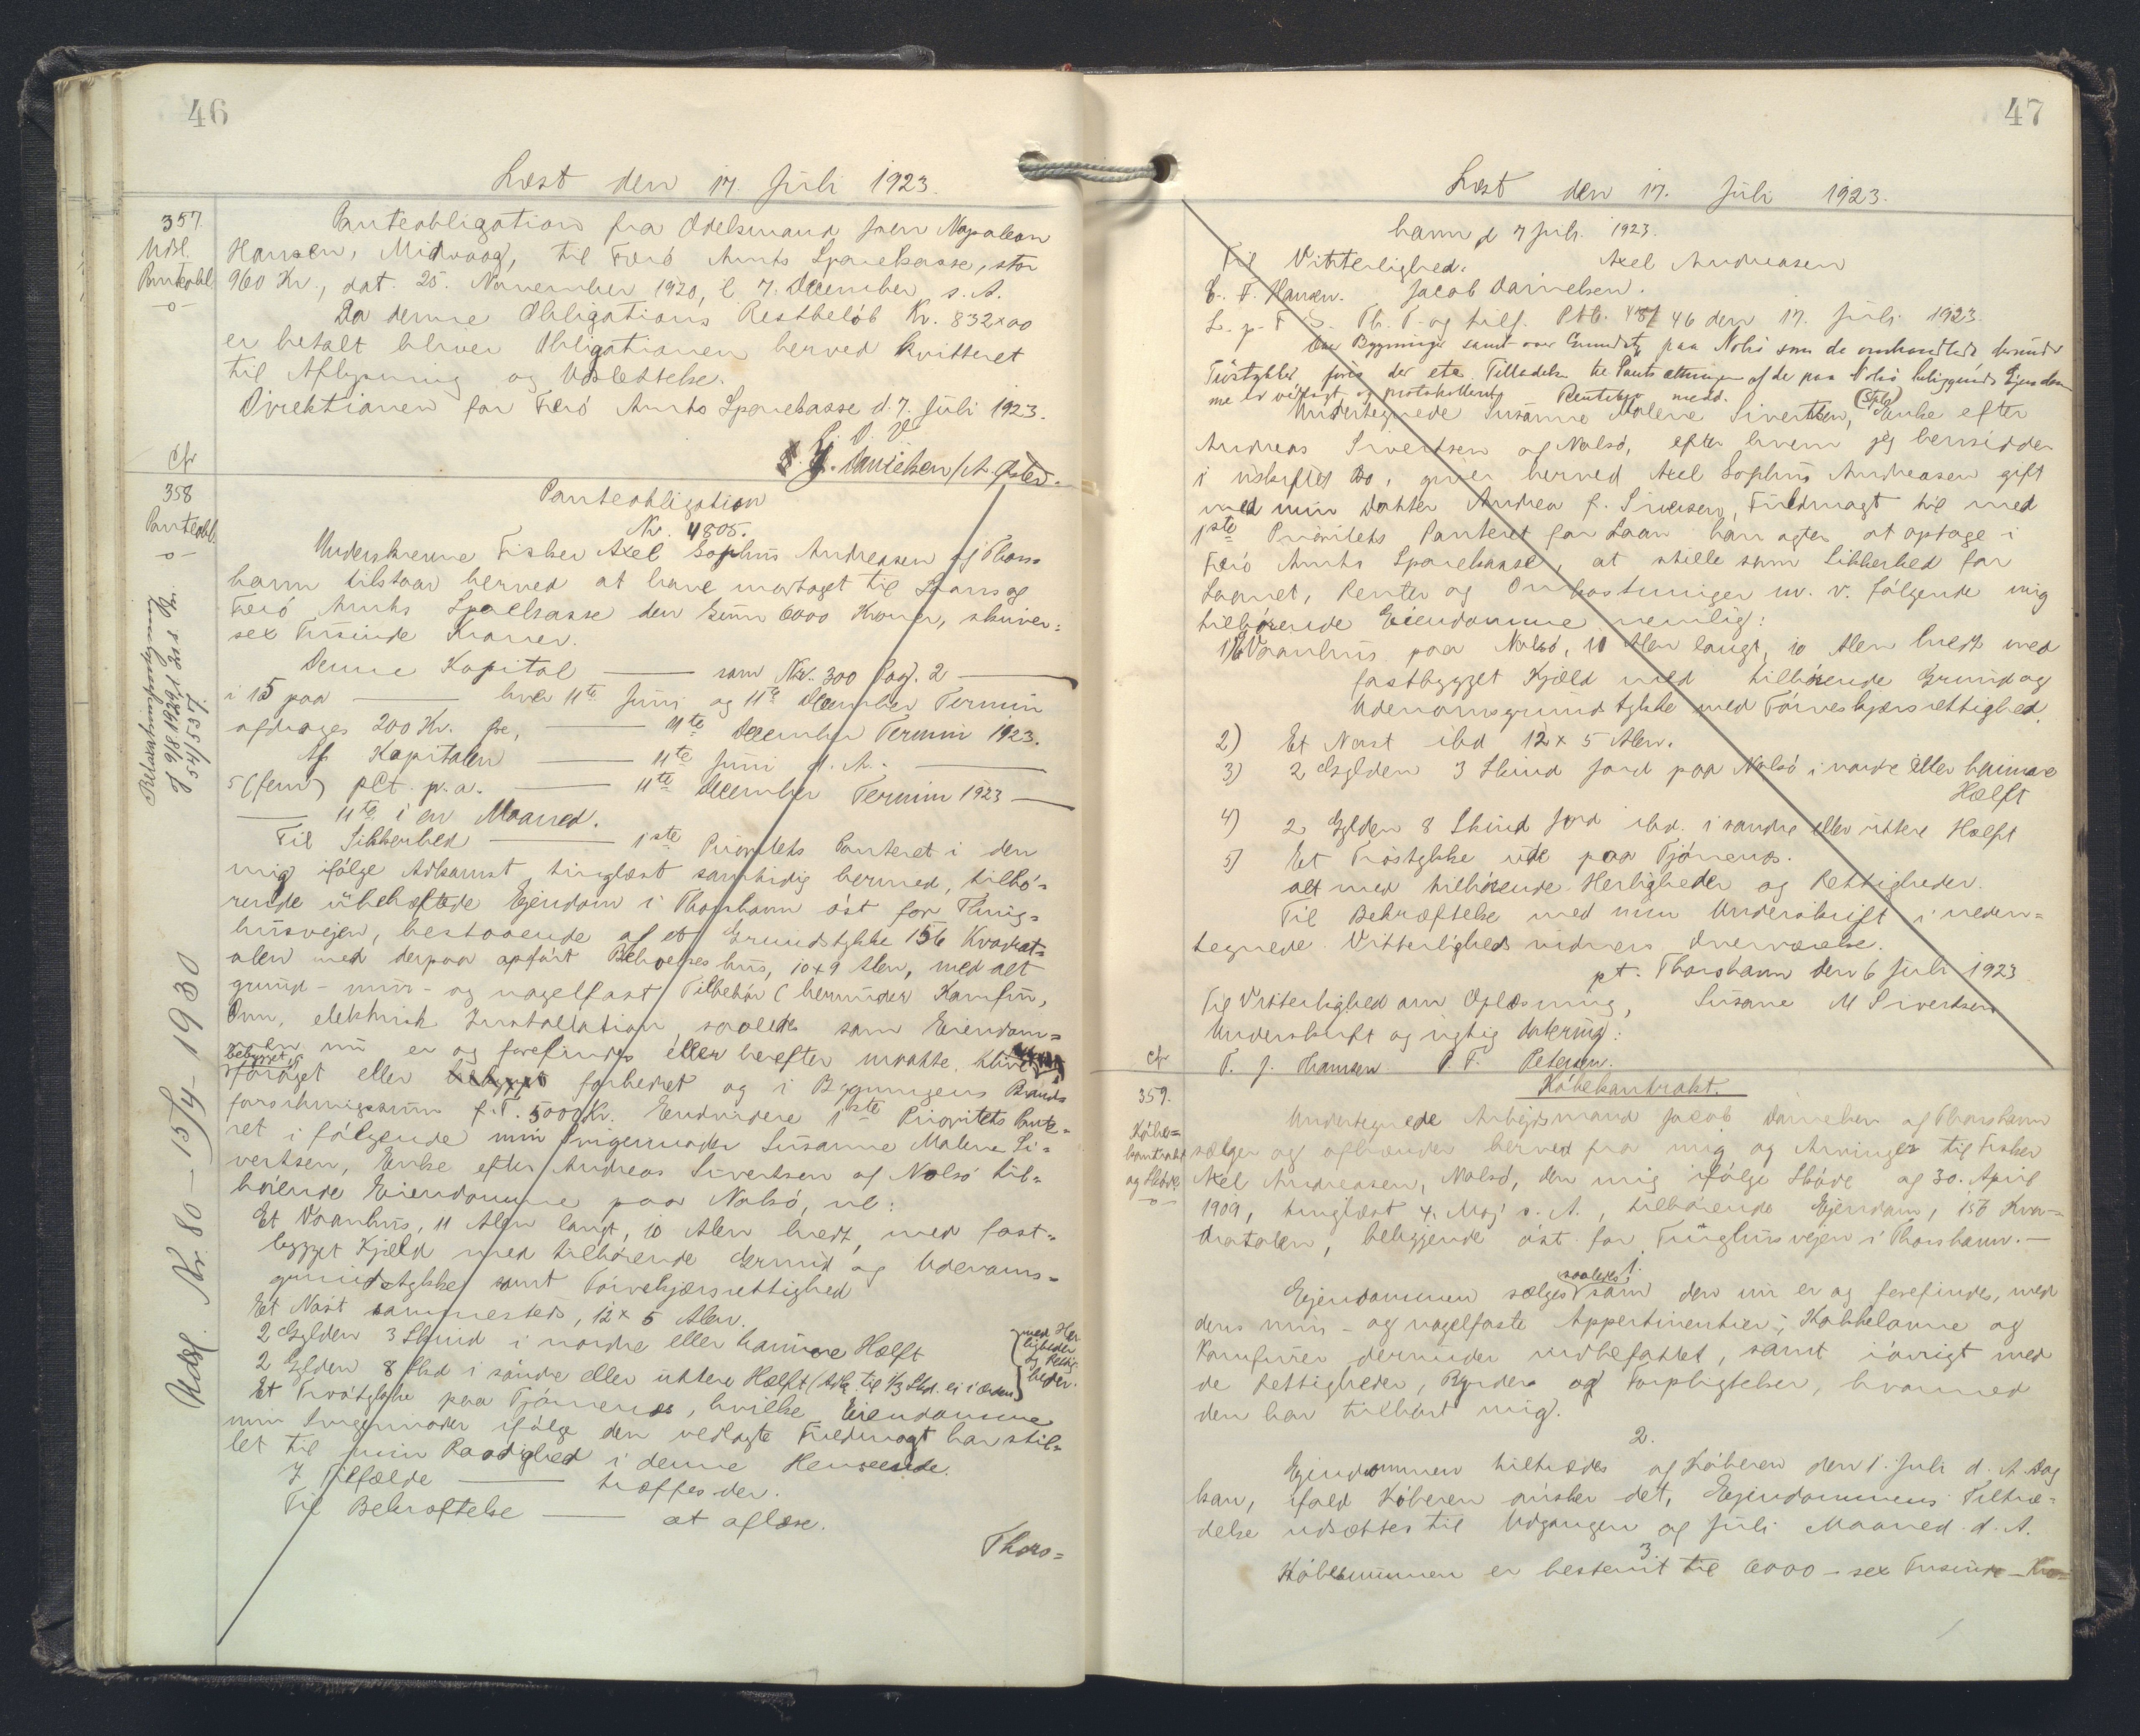 46
Læst den 17. Juli 1923.
357.
Udsl.
Panteobl.
-o-
Panteobligation fra Odelsmand Joen Napoleon
Hansen, Midvaag, til Færö Amts Sparekasse, stor
960 Kr., dat. 25. November 1920, l. 7. December s. A.
Da denne Obligations Restbelöb Kr. 832 x 00
er betalt bliver Obligationen herved kvitteret
til Aflysning og Udslettelse.
Direktionen for Færö Amts Sparekasse d. 7. Juli 1923.
P. D. V.
Danielsen / A.
Cfr
358
Panteobl.
-o-
Panteobligation
Nr. 4805.
Underskrevne Fisker Axel Sophus Andreasen af Thors-
havn tilstaar herved at have modtaget til Laans af
Færö Amts Sparekasse den Sum 6000 Kroner, skriver:
sex Tusinde Kroner.
Denne Kapital —— som Nr. 300 Pag. 2 ——
i 15 paa —— hver 11te Juni og 11te December Termin
afdrages 200 Kr. pr. —— 11te December Termin 1923.
Af Kapitalen —— 11te Juni d. A. ——
5 (fem) pCt. p. a. —— 11te December Termin 1923 ——
—— 11te i en Maaned.
Til Sikkerhed —— 1ste Prioritets Panteret i den
mig ifölge Adkomst, tinglæst samtidig hermed, tilhö-
rende ubehæftede Ejendom i Thorshavn öst for Thing-
husvejen, bestaaende af et Grundstykke 156 Kvadrat-
alen med derpaa opfört Beboelseshus, 10 x 9 Alen, med alt
grund- mur- og nagelfast Tilbehör (herunder Komfur,
Ovn, elektrisk Installation, saaledes som Eiendom-
men nu er og forefindes eller herefter maatte blive
bebygget,
foröget eller forbedret og i Bygningens Brand-
forsikringssum f. T. 5000 Kr. Endvidere 1ste Prioritets Pante-
ret i fölgende min Svigermoder Susanne Malene Si-
vertsen, Enke efter Andreas Sivertsen af Nolsö til-
hörende Eiendomme paa Nolsö, nl:
Et Vaanhus, 11 Alen langt, 10 Alen bredt, med fast-
bygget Kjæld med tilhörende Grund og Udenoms-
grundstykke samt Törveskjærsrettighed
Et Nöst sammesteds, 12 x 5 Alen.
2 Gylden 3 Skind i nordre eller haimare Hælft
2 Gylden 8 Skd i söndre eller uttere Hælft (Adk. til 1/3 Skd. ei i Orden)
med Her-
ligheder
og Rettig-
heder.
Et Tröstykke paa Tjörnenes, hvilke Eiendomme
min Svigermoder ifölge den vedlagte Fuldmagt har stil-
let til min Raadighed i denne Henseende.
I Tilfælde —— træffes der.
Til Bekræftelse —— at aflæse.
Thors-
Relaxationspaategning
T 9/8 1929 l 20 s Aar
54/537.
Udsl. Nr. 80 - 15/4 - 1930
47
Læst den 17. Juli 1923.
havn d. 7 Juli 1923.
Til Vitterlighed.
Axel Andreasen
E. F. Hansen.
Jacob Danielsen.
L. p. F. S. Th. T. og tilf. Ptb. 48/46 den 17. Juli 1923.
Bygninger samt over Grundst. paa Nolsö som de omhandlede derunder
Tröstykker, förend der Tilladelse til Pantsætningen af de paa Nolsö beliggende Ejendom-
me er vedlagt og protokolleret.
Undertegnede Susanne Malene Sivertsen, Enke efter
Andreas Sivertsen af Nolsö, efter hvem jeg hensidder
i uskiftet Bo, giver herved Axel Sophus Andreasen gift
med min Datter Andrea f. Sivertsen, Fuldmagt til med
1ste Prioritets Panteret for Laan han agter at optage i
Færö Amts Sparekasse, at stille som Sikkerhed for
Laanet, Renter og Omkostninger m. v. fölgende mig
tilhörende Eiendomme nemlig:
1) Et Vaanhus paa Nolsö, 11 Alen langt, 10 Alen bredt med
fastbygget Kjæld med tilhörende Grund og
Udenomsgrundstykke med Törveskjærsrettighed.
2) Et Nöst ibd 12 x 5 Alen.
3) 2 Gylden 3 Skind Jord paa Nolsö i nordre eller haimare
Hælft
4) 2 Gylden 8 Skind Jord ibd. i söndre eller uttere Hælft
5) Et Tröstykke ude paa Tjörnenes.
alt med tilhörende Herligheder og Rettigheder.
Til Bekræftelse med min Underskrift i neden-
tegnede Vitterlighedsvidners Overværelse.
pt. Thorshavn den 6 Juli 1923
Til Vitterlighed om Oplæsning, Susanne M Sivertsen
Underskrift og rigtig Datering:
Cfr
T. J. Thomsen P. F. Petersen.
359.
Köbe-
kontrakt
og Sköde
-o-
Köbekontrakt.
Undertegnede Arbejdsmand Jacob Danielsen af Thorshavn
sælger og afhænder herved fra mig og Arvinger til Fisker
Axel Andreasen, Nolsö, den mig ifölge Sköde af 30. April
1909, tinglæst 4. Maj s. A., tilhörende Ejendom, 156 Kva-
dratalen, beliggende öst for Tinghusvejen i Thorshavn. —
1.
Ejendommen sælges saaledes som den nu er og forefindes, med
dens mur- og nagelfaste Appertinentier, Kakkelovne og
Komfurer derunder indbefattet, samt iövrigt med
de Rettigheder, Byrder og Forpligtelser, hvormed
den har tilhört mig.
2.
Ejendommen tiltrædes af Köberen den 1. Juli d. A. Dog
kan, ifald Köberen önsker det, Ejendommens Tiltræ-
delse udsættes til Udgangen af Juli Maaned d. A.
3
Köbesummen er bestemt til 6000 - sex Tusinde - Kro-